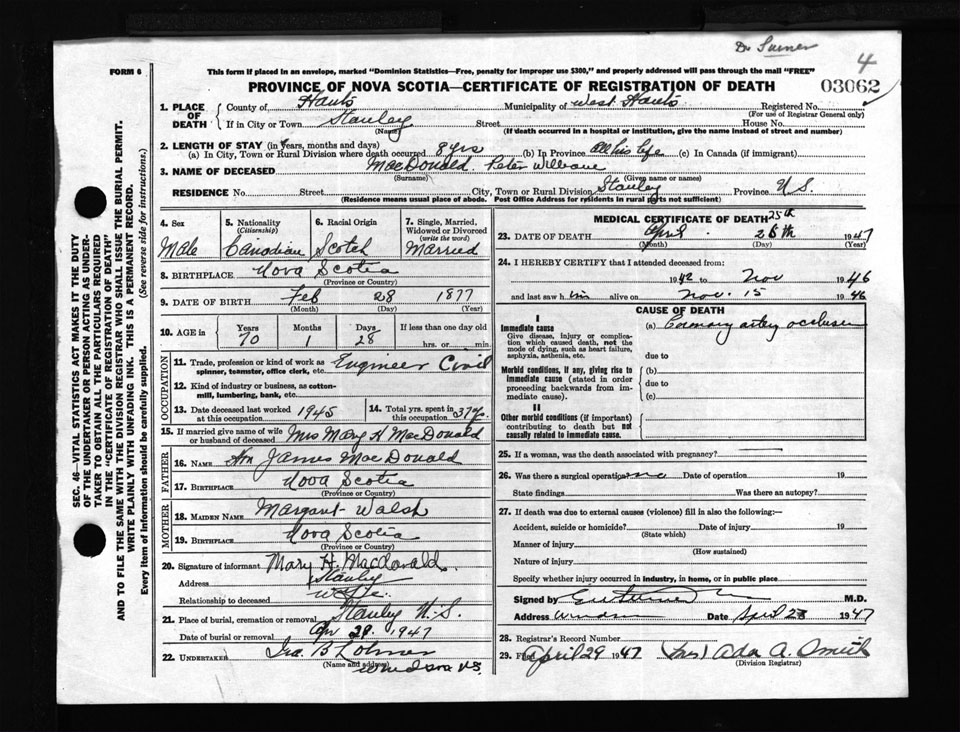 Dr Turner
4
FORM 6
This form if placed in an envelope, marked "Dominion Statistics—Free, penalty for improper use $300," and properly addressed will pass through the mail "FREE"
PROVINCE OF NOVA SCOTIA—CERTIFICATE OF REGISTRATION OF DEATH
03062
SEC. 46—VITAL STATISTICS ACT MAKES IT THE DUTY
OF THE UNDERTAKER OR PERSON ACTING AS UNDER-
TAKER TO OBTAIN ALL THE PARTICULARS REQUIRED
IN THE "CERTIFICATE OF REGISTRATION OF DEATH"
AND TO FILE THE SAME WITH THE DIVISION REGISTRAR WHO SHALL ISSUE THE BURIAL PERMIT.
WRITE PLAINLY WITH UNFADING INK. THIS IS A PERMANENT RECORD.
Every item of information should be carefully supplied. (See reverse side for instructions.)
1. PLACE OF DEATH County of Hants Municipality of West Hants Registered No.
(For use of Registrar General only)
If in City or Town Stanley Street House No.
(Name) (If death occurred in a hospital or institution, give the name instead of street and number)
2. LENGTH OF STAY (in years, months and days)
(a) In City, Town or Rural Division where death occurred 8 yrs (b) In Province All his life (c) In Canada (if immigrant)
3. NAME OF DECEASED MacDonald Peter William
(Surname) (Given name or names)
RESIDENCE No. Street City, Town or Rural Division Stanley Province N.S.
(Residence means usual place of abode. Post Office Address for residents in rural parts not sufficient)
4. Sex Male
5. Nationality (Citizenship) Canadian
6. Racial Origin Scotch
7. Single, Married, Widowed or Divorced (write the word) Married
8. BIRTHPLACE Nova Scotia
(Province or Country)
9. DATE OF BIRTH Feb 28 1877
(Month) (Day) (Year)
10. AGE in Years 70 Months 1 Days 28 If less than one day old hrs. or min.
OCCUPATION
11. Trade, profession or kind of work as spinner, teamster, office clerk, etc. Engineer Civil
12. Kind of industry or business, as cotton-mill, lumbering, bank, etc.
13. Date deceased last worked at this occupation 1945
14. Total yrs. spent in this occupation. 37 y.
15. If married give name of wife or husband of deceased Mrs Mary H MacDonald
FATHER
16. NAME Wm James MacDonald
17. BIRTHPLACE Nova Scotia
(Province or Country)
MOTHER
18. MAIDEN NAME Margaret Walsh
19. BIRTHPLACE Nova Scotia
(Province or Country)
20. Signature of informant Mary H. Macdonald.
Address Stanley
Relationship to deceased Wife
21. Place of burial, cremation or removal Stanley N.S.
Date of burial or removal Apr 29. 1947
22. UNDERTAKER Ira. B
(Name and address) Windsor N.S.
MEDICAL CERTIFICATE OF DEATH
25th
23. DATE OF DEATH April 26th 1947
(Month) (Day) (Year)
24. I HEREBY CERTIFY that I attended deceased from:
1942 to Nov 1946
and last saw him alive on Nov. 15 1946
CAUSE OF DEATH
I
Immediate cause
Give disease, injury or complication which caused death, not the mode of dying, such as heart failure, asphyxia, asthenia, etc.
(a) Coronary artery occlusion
due to
Morbid conditions, if any, giving rise to immediate cause (stated in order proceeding backwards from immediate cause).
(b)
due to
(c)
II
Other morbid conditions (if important) contributing to death but not causally related to immediate cause.
25. If a woman, was the death associated with pregnancy?
26. Was there a surgical operation no Date of operation 19
State findings Was there an autopsy?
27. If death was due to external causes (violence) fill in also the following:—
Accident, suicide or homicide? Date of injury 19
(State which)
Manner of injury
(How sustained)
Nature of injury
Specify whether injury occurred in industry, in home, or in public place
Signed by M.D.
Address Windsor Date April 28 1947
28. Registrar's Record Number
29. Filed April 29 1947 (Mrs) Ada A. Smith
(Division Registrar)